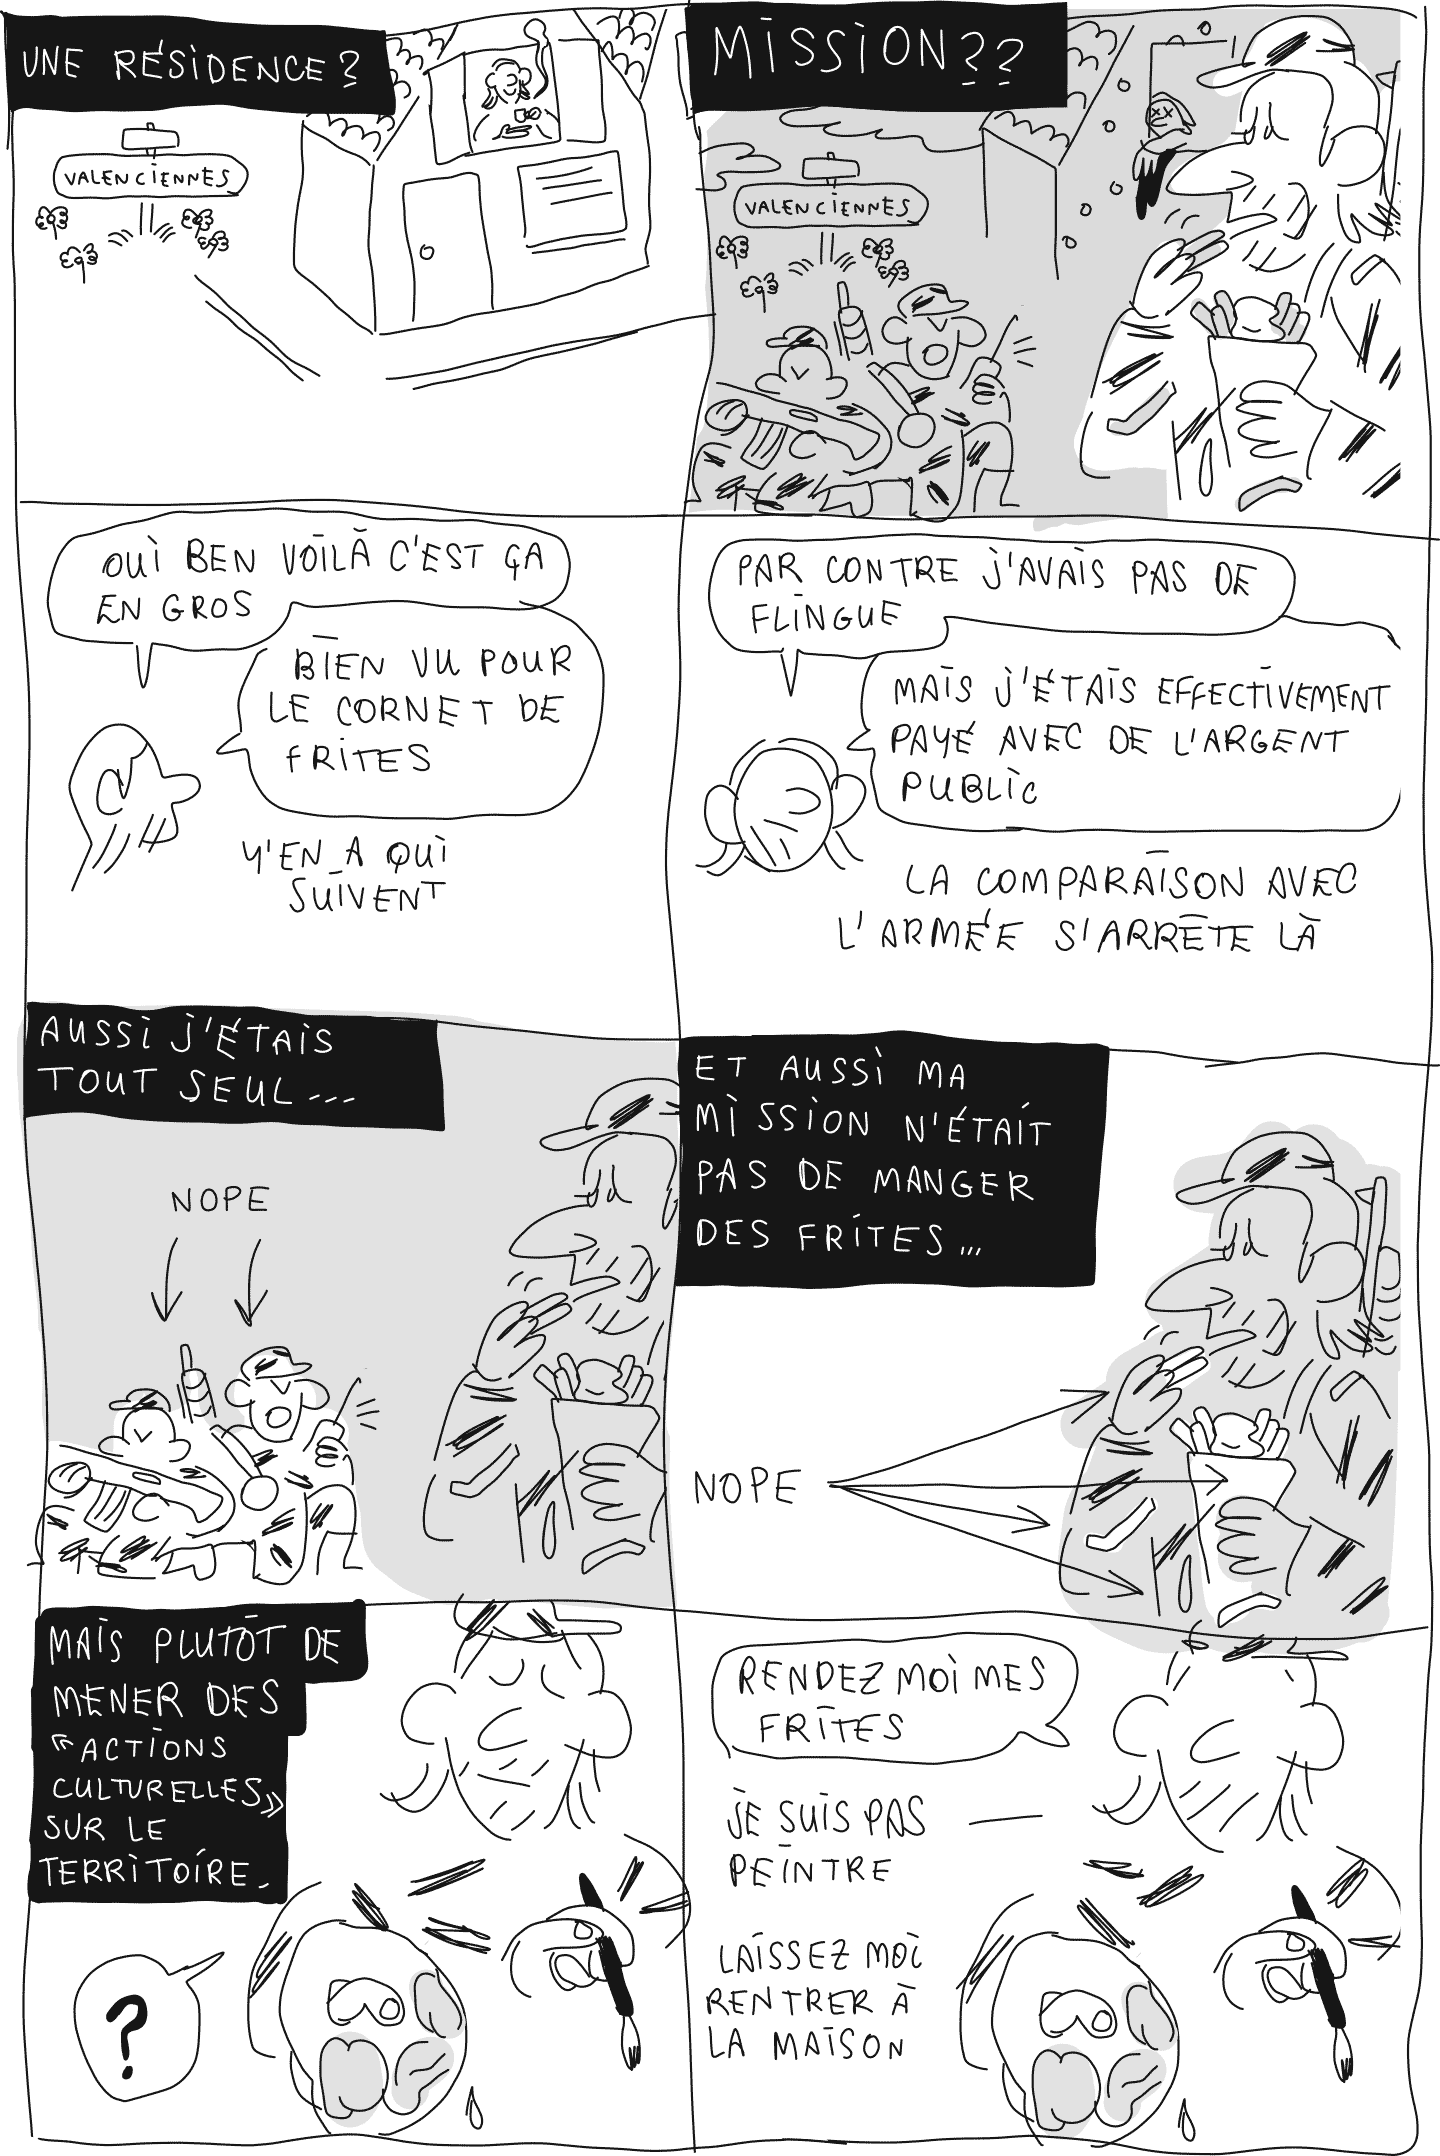 UNE RÉSIDENCE ?
VALENCIENNES
MISSION ??
VALENCIENNES
OUI BEN VOILÀ C'EST ÇA
EN GROS
BIEN VU POUR
LE CORNET DE
FRITES
Y'EN A QUI
SUIVENT
PAR CONTRE J'AVAIS PAS DE
FLINGUE
MAIS J'ÉTAIS EFFECTIVEMENT
PAYÉ AVEC DE L'ARGENT
PUBLIC
LA COMPARAISON AVEC
L'ARMÉE S'ARRÊTE LÀ
AUSSI J'ÉTAIS
TOUT SEUL...
NOPE
ET AUSSI MA
MISSION N'ÉTAIT
PAS DE MANGER
DES FRITES...
NOPE
MAIS PLUTÔT DE
MENER DES
«ACTIONS
CULTURELLES»
SUR LE
TERRITOIRE.
?
RENDEZ MOI MES
FRITES
JE SUIS PAS
PEINTRE
LAISSEZ MOI
RENTRER À
LA MAISON